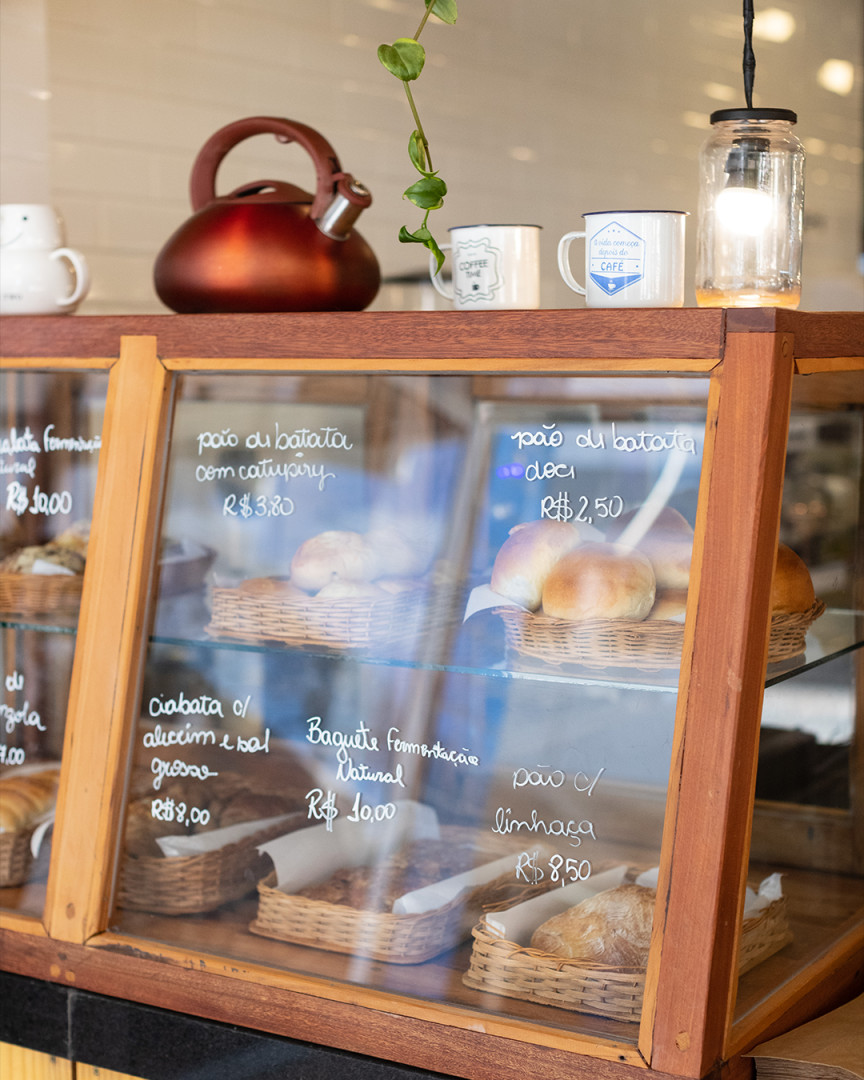 COFFEE
TIME
a vida começa
depois do
CAFÉ
Fermentação
R$10,00
pão di batata
com catupiry
R$3,80
pão di batata
doci
R$2,50
de
Ciabata c/
alecrim e sal
grosso
R$8,00
Baguete Fermentação
Natural
R$ 10,00
pão c/
linhaça
R$ 8,50